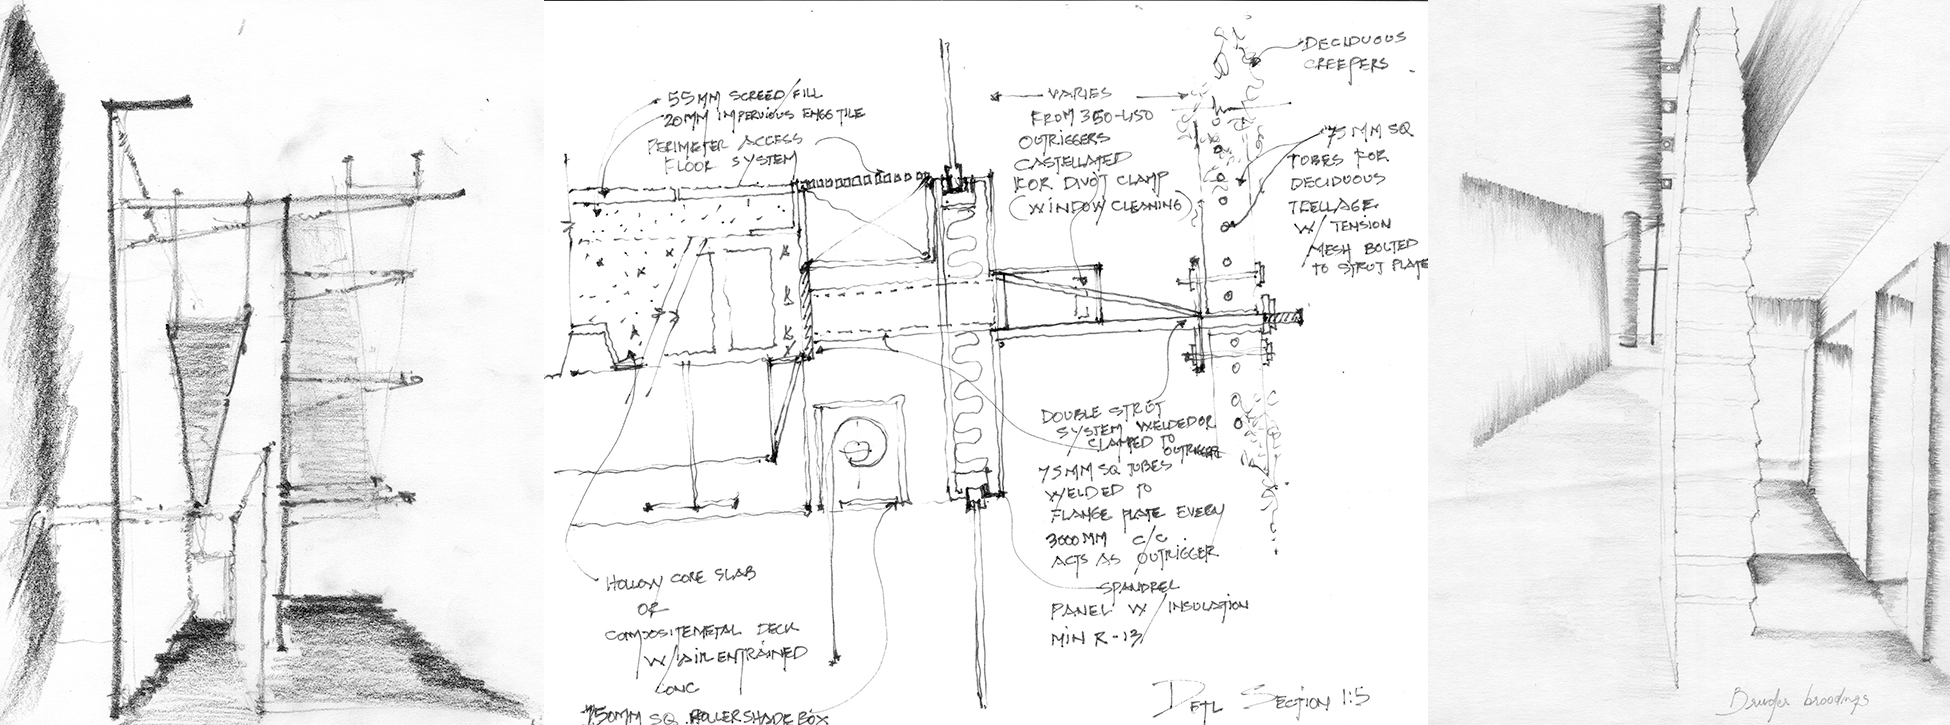 55MM SCREED/FILL
20MM IMPERVIOUS ENGG TILE
PERIMETER ACCESS
FLOOR SYSTEM
VARIES
FROM 350-450
OUTRIGGERS
CASTELLATED
FOR DIVOT CLAMP
(WINDOW CLEANING)
DECIDUOUS
CREEPERS
75MM SQ
TUBES FOR
DECIDUOUS
TRELLAGE
W/ TENSION
MESH BOLTED
TO STRUT PLATE
DOUBLE STRUT
SYSTEM WELDED OR
CLAMPED TO
OUTRIGGER
75MM SQ TUBES
WELDED TO
FLANGE PLATE EVERY
3000MM C/C
ACTS AS OUTRIGGER
SPANDREL
PANEL W/ INSULATION
MIN R-13
HOLLOW CORE SLAB
OR
COMPOSITE METAL DECK
W/ AIR ENTRAINED
CONC
150MM SQ ROLLER SHADE BOX
DETL SECTION 1:5
broodings